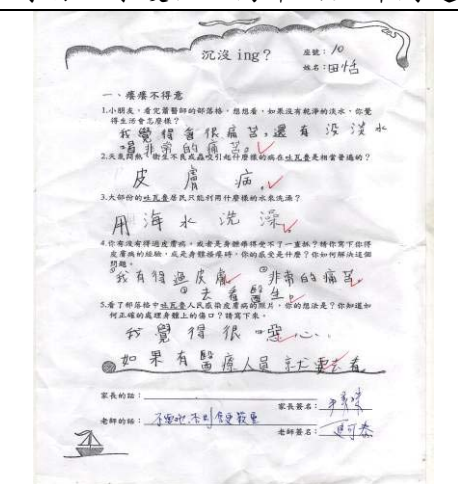 沉沒 ing？
座號：10
姓名：田恬
一、癢癢不得意
1.小朋友，看完蕭醫師的部落格，想想看，如果沒有乾淨的淡水，你覺
得生活會怎麼樣？
我覺得會很痛苦,還有沒淡水
喝非常的痛苦。
2.天氣悶熱、衛生不良或蟲咬引起什麼樣的病在吐瓦魯是相當普遍的？
皮膚病。
3.大部份的吐瓦魯居民只能利用什麼樣的水來洗澡？
用海水洗澡。
4.你有沒有得過皮膚病，或者是身體癢得受不了一直抓？請你寫下你得
皮膚病的經驗，或是身體搔癢時，你的感受是什麼？你如何解決這個
問題。
①我有得過皮膚 ②非常的痛苦
③去看醫生。
5.看了部落格中吐瓦魯人民感染皮膚病的照片，你的想法是？你知道如
何正確的處理身體上的傷口？請寫下來。
我覺得很噁心、
如果有醫療人員就要去看
家長的話：
家長簽名：
老師的話：
老師簽名：